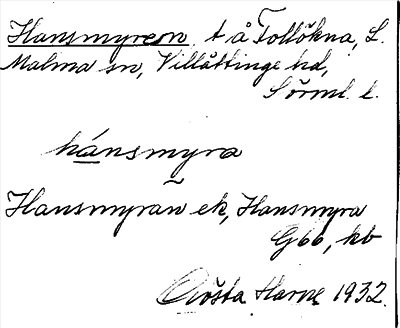 Hansmyren t å Tollökna, L.
Malma sn, Villåttinge hd,
Sörml. l.
hánsmyra
Hansmyran ek, Hansmyra
G66, kb
Harne 1932.